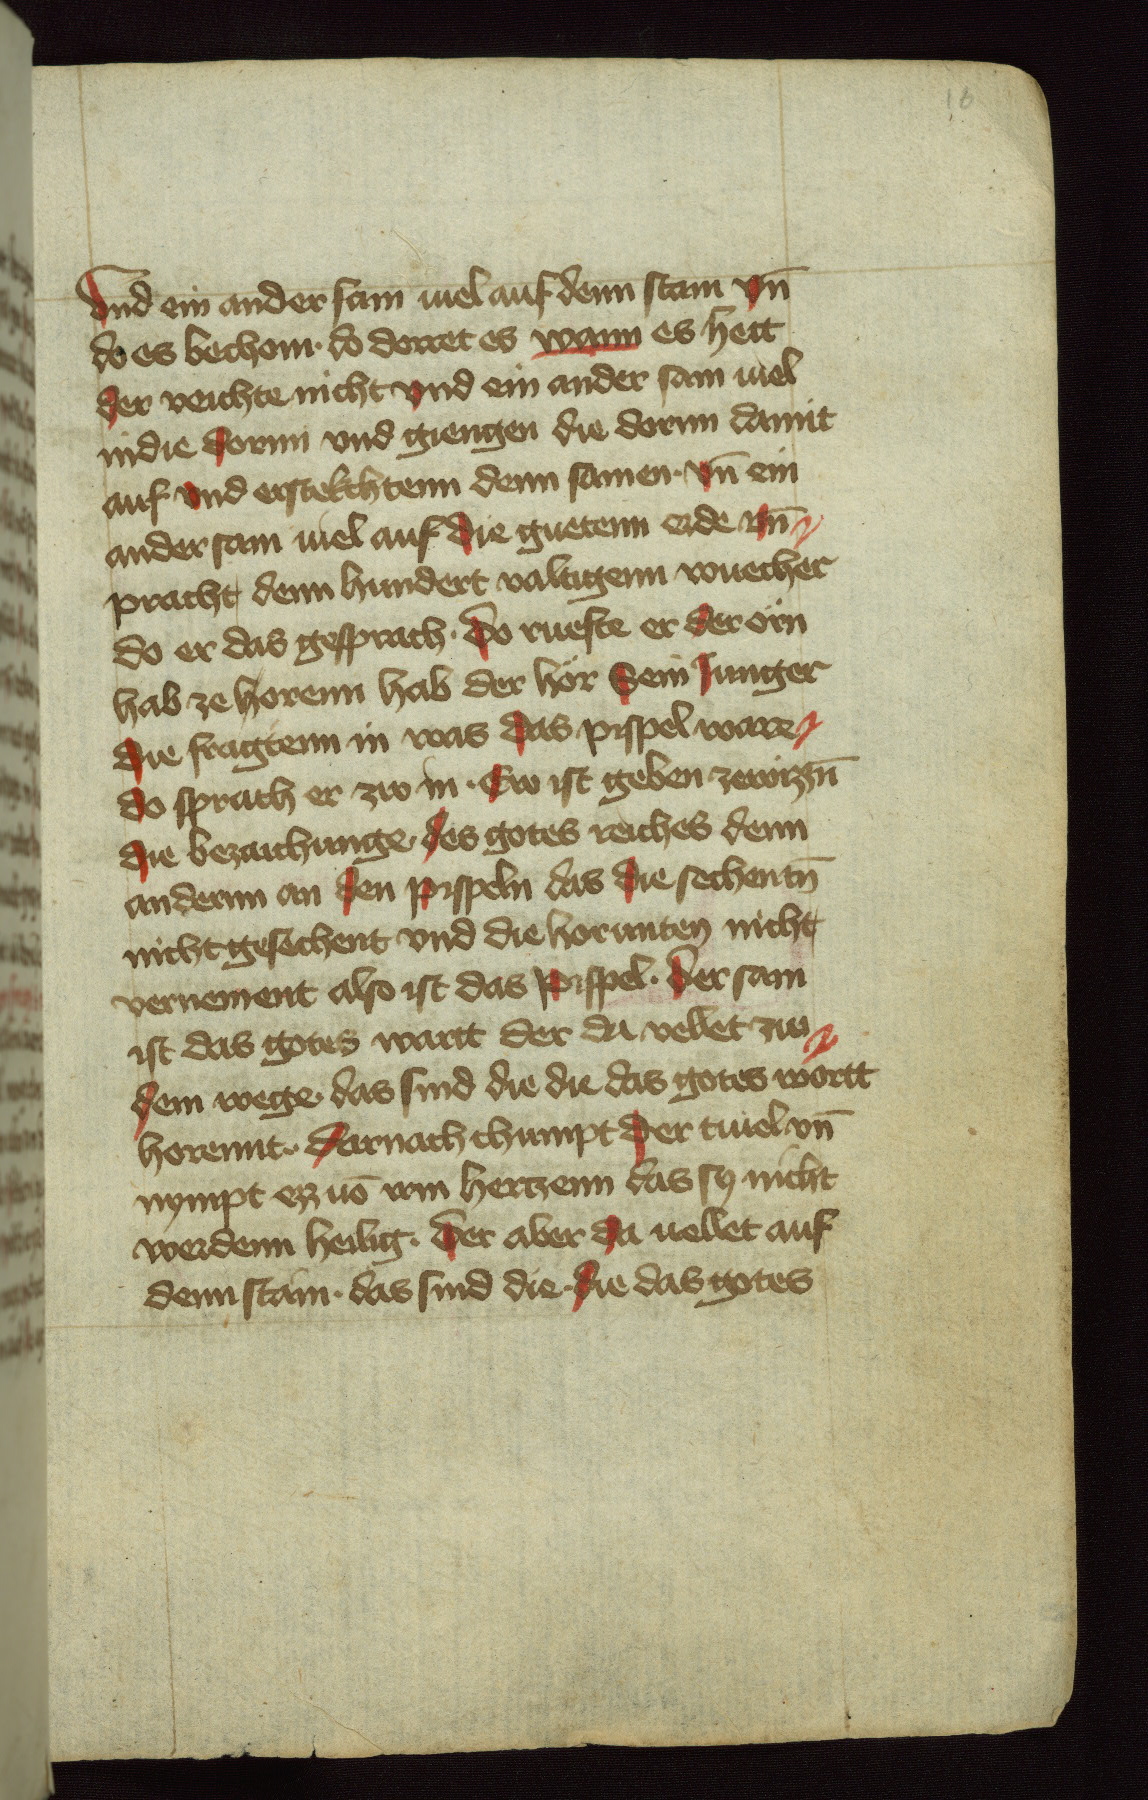 16
Vnd ein ander sam uiel auf denn stain vn̄
do es bechom · do dorret es wann es hett
der veuchte nicht vnd ein ander sam uiel
indie dornn vnd giengen die dornn damit
auf · vnd erstekchtenn denn samen · vn̄ ein
ander sam uiel auf die guetenn erde vn̄
pracht denn hundert valtigenn wuecher
do er das gesprach · Do rueste er der örn
hab ze horenn hab der hör Sein Junger
die fragtenn in was das pispel ware
do sprach er zw in · Ew ist geben zewizn̄
die bezaichunge · des gotes reiches denn
andernn an den pispeln das die sechentn̄
nicht gesechent vnd die horunten nicht
vernement also ist das pispel · Der sam
ist das gotes wartt der da vellet zw
dem wege · das sind die die das gotes wortt
horennt · Darnach chumpt der tiuel vn̄
nympt ez uō irm hertzenn das sy nicht
werdenn heilig · Der aber da uellet auf
denn stain · das sind die · die das gotes